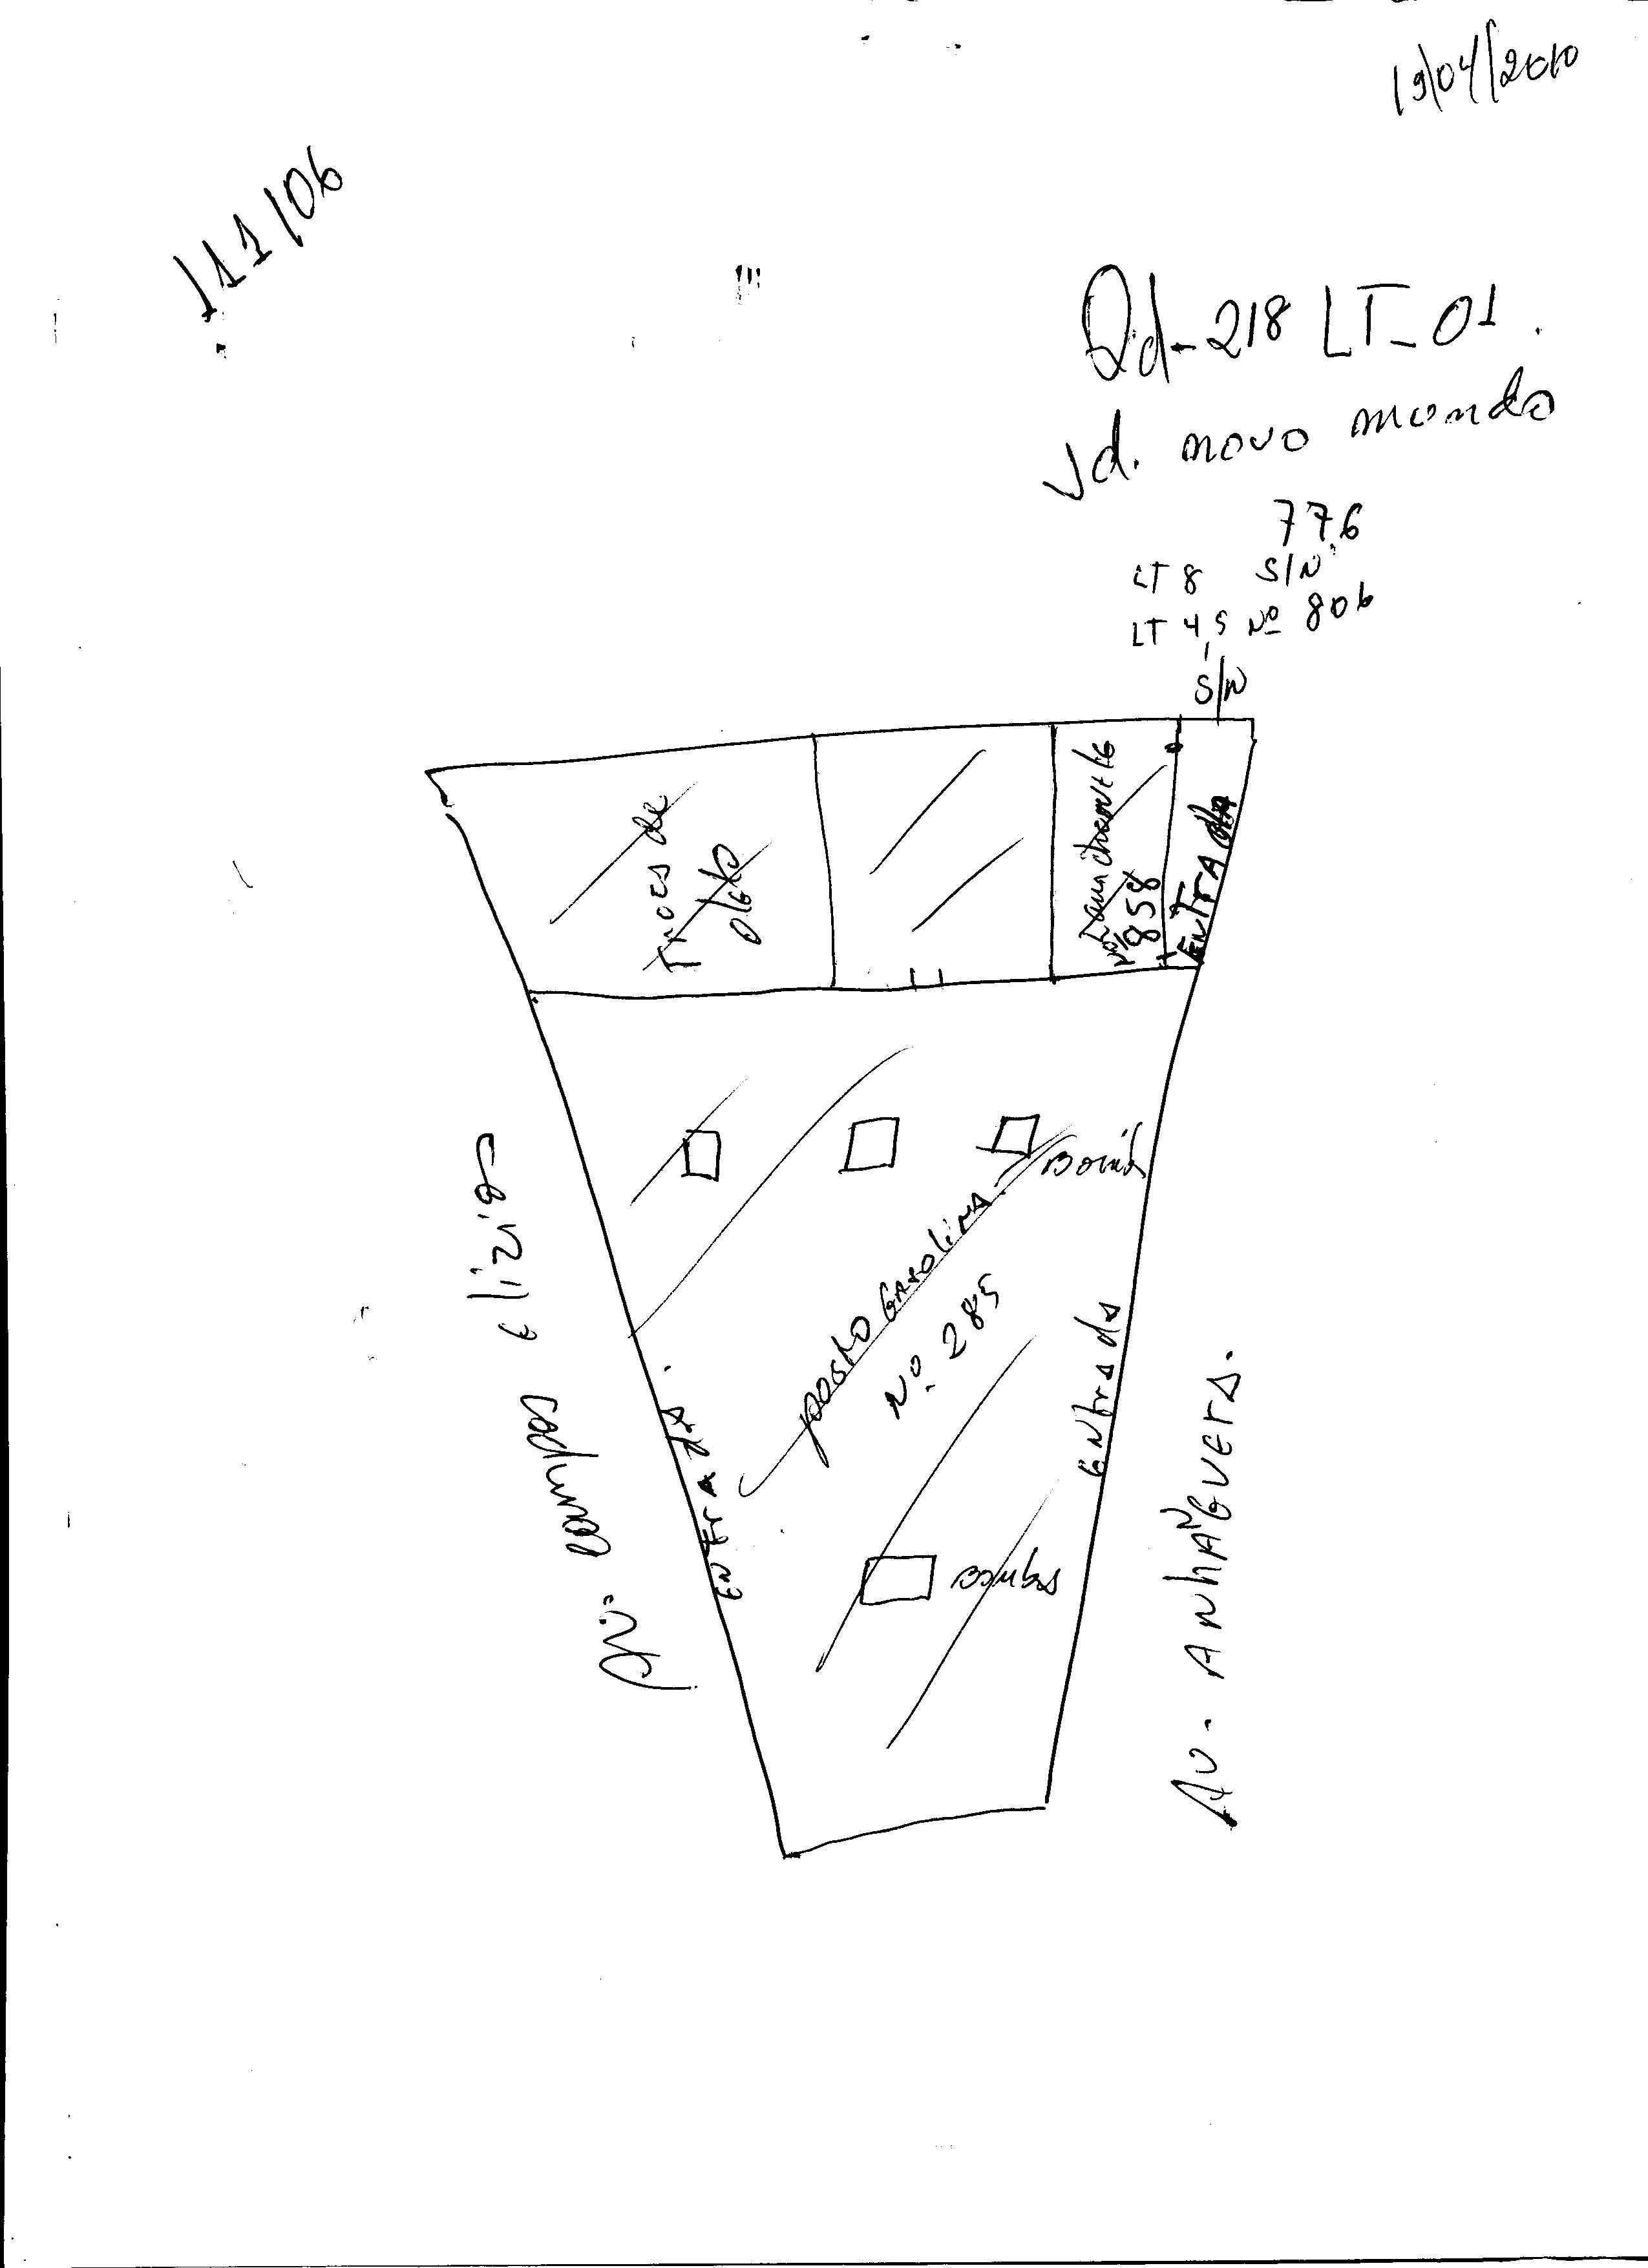 19/04/2010
111/06
Qd-218 LT-01.
Jd. novo mundo
776
LT 8 S/N
LT 4,5 Nº 806
S/N
Troes de
oleo
Lanchonete
Nº 858
ENTrAdA
Bomb
posto GAsolinA
Nº. 285
ENTrAdA.
ENtrada
Bombas
Av. campos elizios
Av. ANhANGUerA.